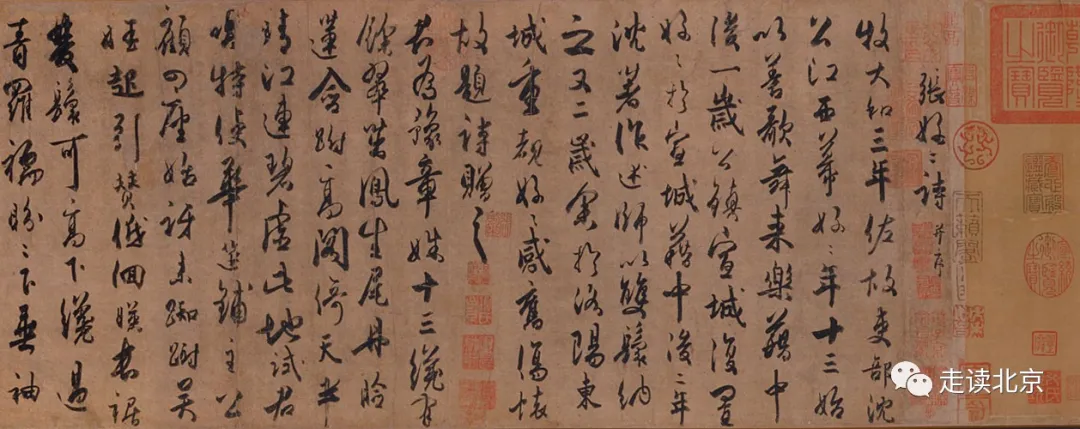 乾隆御覽之寶
張好〻詩 并序
牧大和三年佐故吏部沈
公江西幕好〻年十三始
以善歌舞来樂籍中
後一歲公鎮宣城復置
好〻於宣城籍中後二年
沈著作述師以雙鬟納
之又二歲余於洛陽東
城重覩好〻感舊傷懷
故題詩贈之
君為豫章姝十三纔有
餘翠茁鳳生尾丹臉
蓮含跗高閣倚天半
晴江連碧虛此地試君
唱特使華筵鋪主公
顧四座始訝来踟蹰吳
娃起引贊低佪暎長裾
雙鬟可高下纔過
青羅襦盼〻下垂袖
走读北京